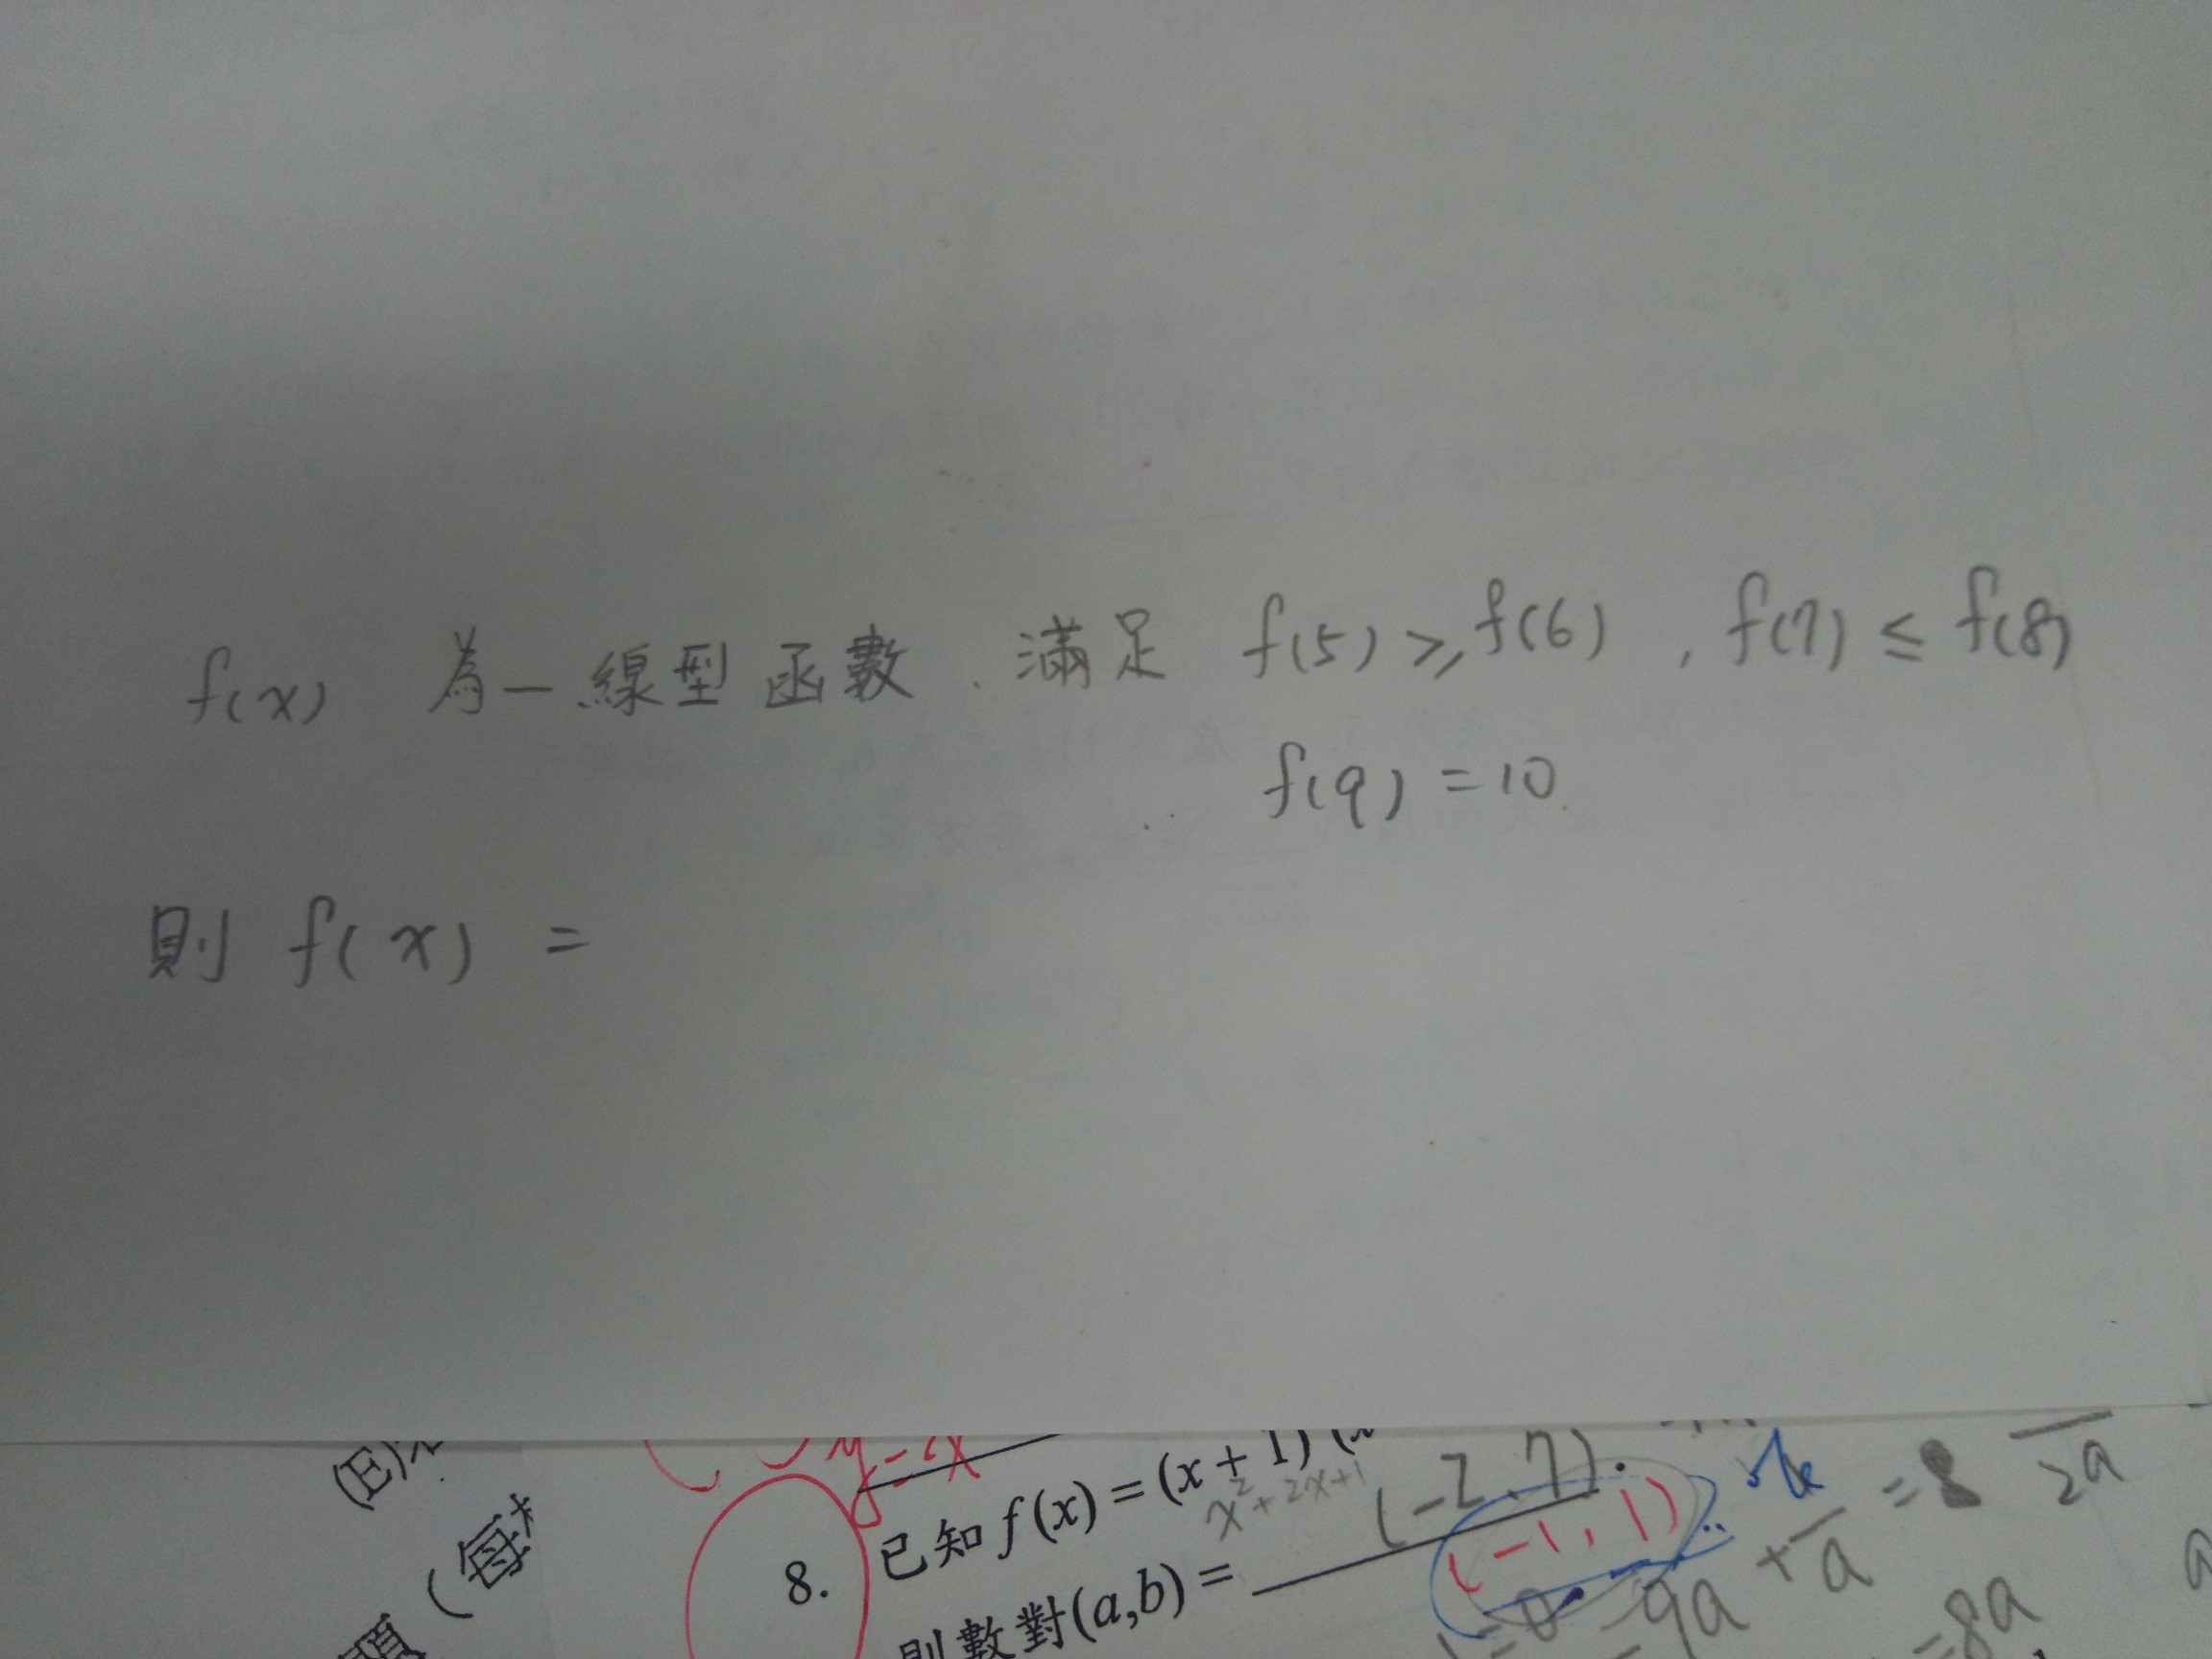 f(x) 為一線型函數. 滿足 f(5) ≥ f(6) , f(7) ≤ f(8)
f(9) = 10.
則 f(x) =
(E)
(每
題
8. 已知 f(x) = (x+1)
x²+2x+1
則數對(a,b) =
(-2, 7).
(-1, 1)
= 8
2a
9a
= 8a